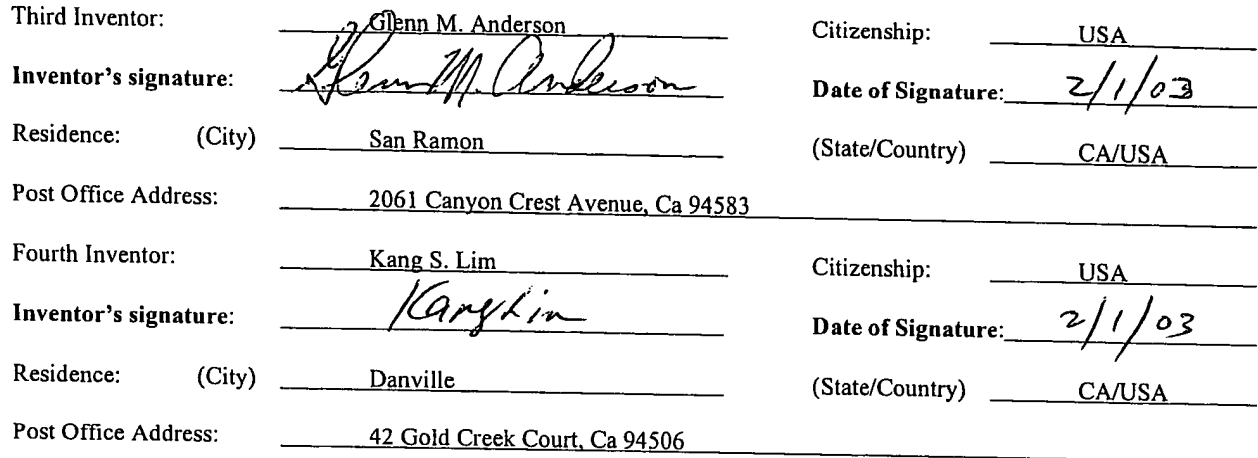 Third Inventor: Glenn M. Anderson Citizenship: USA
Inventor's signature: Glenn M. Anderson Date of Signature: 2/1/03
Residence: (City) San Ramon (State/Country) CA/USA
Post Office Address: 2061 Canyon Crest Avenue, Ca 94583
Fourth Inventor: Kang S. Lim Citizenship: USA
Inventor's signature: Kang Lim Date of Signature: 2/1/03
Residence: (City) Danville (State/Country) CA/USA
Post Office Address: 42 Gold Creek Court, Ca 94506